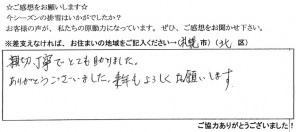 ☆ご感想をお願いします☆
今シーズンの排雪はいかがでしたか？
お客様の声が、私たちの原動力になっています。ぜひ、ご感想をお聞かせ下さい。
※差支えなければ、お住まいの地域をご記入ください→(札幌市)(北 区)
親切、丁寧でとても助かりました。
ありがとうございました。来年もよろしくお願いします
ご協力ありがとうございました！